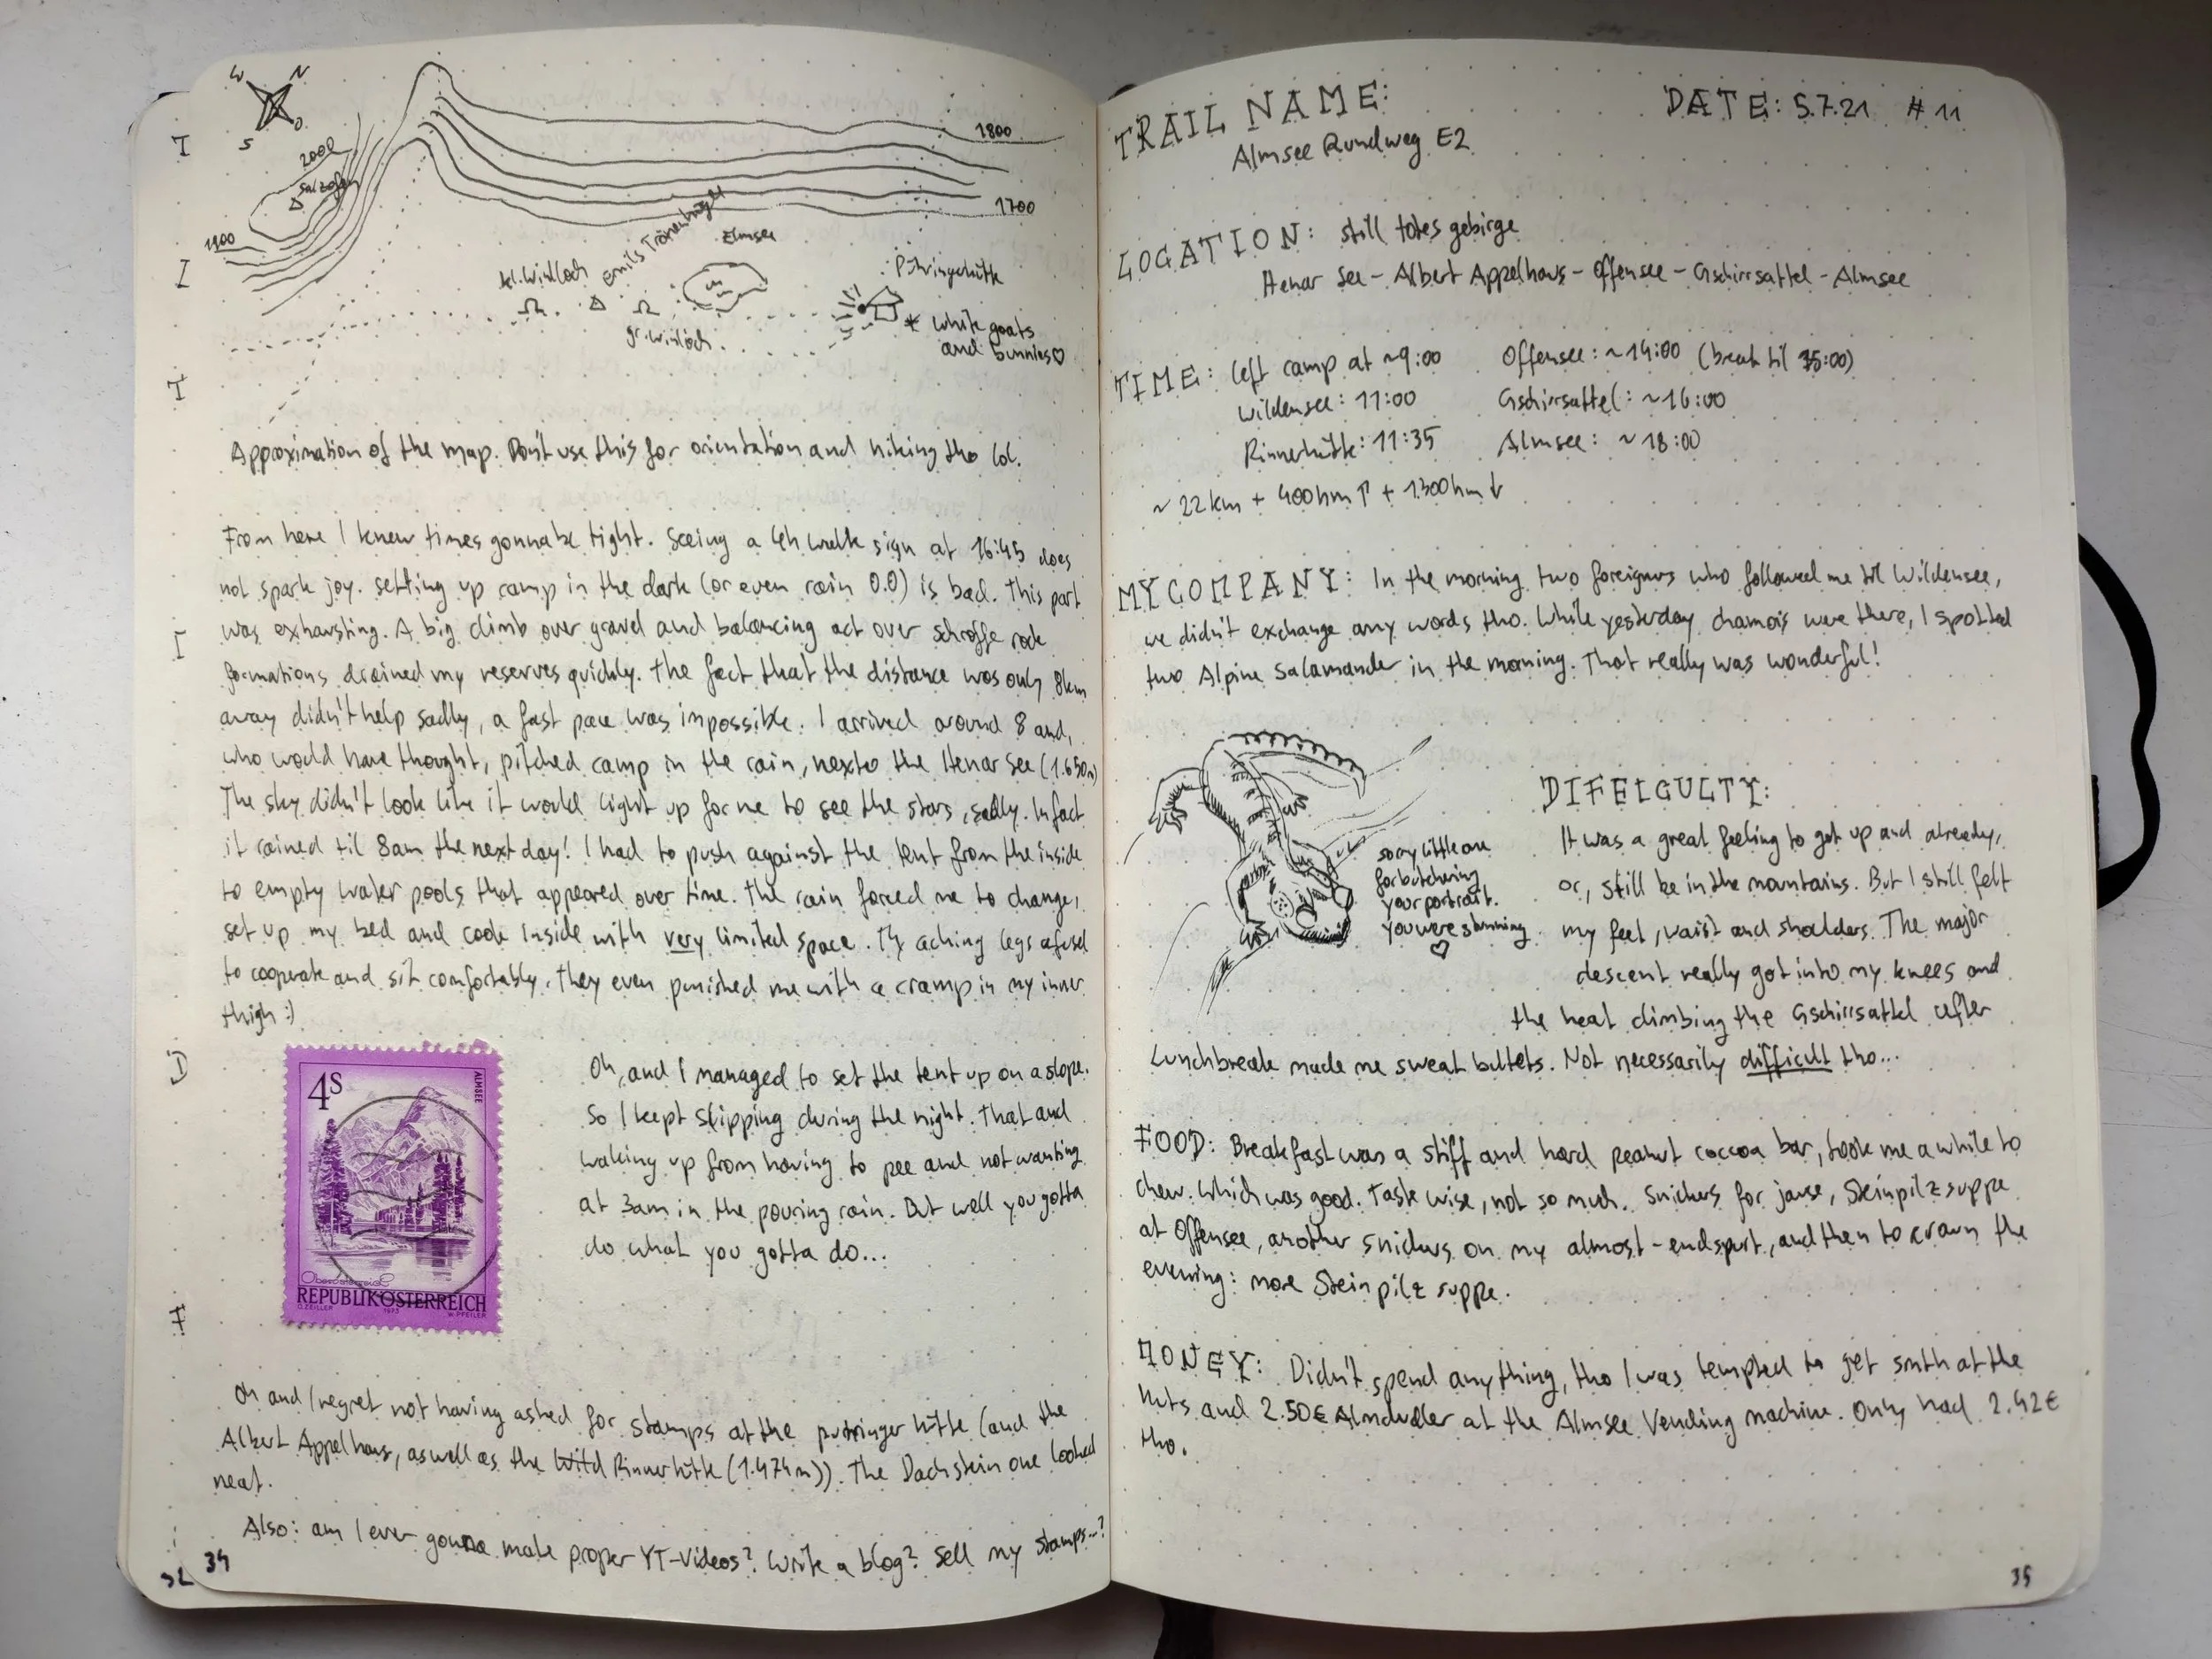 W N
S O
2000
Salzofen
1900
1800
1700
kl. Windloch
Emils Tränenhügel
Elmsee
gr. Windloch
Pühringerhütte
* White goats
and bunnies♡
Approximation of the map. Don't use this for orientation and hiking tho lol.
From here I knew times gonna be tight. Seeing a 4h walk sign at 16:45 does
not spark joy. Setting up camp in the dark (or even rain 0.0) is bad. This part
was exhausting. A big climb over gravel and balancing act over schroffe rock
formations drained my reserves quickly. The fact that the distance was only 8km
away didn't help sadly, a fast pace was impossible. I arrived around 8 and,
who would have thought, pitched camp in the rain, nexto the Henar See (1.650m)
The sky didn't look like it would light up for me to see the stars, sadly. In fact
it rained til 8am the next day! I had to push against the tent from the inside
to empty water pools that appeared over time. The rain forced me to change,
set up my bed and cook inside with very limited space. My aching legs refused
to cooperate and sit comfortably. They even punished me with a cramp in my inner
thigh :)
4S
ALMSEE
Oberösterreich
REPUBLIK ÖSTERREICH
O. ZEILLER 1973 W. PFEILER
Oh, and I managed to set the tent up on a slope.
So I kept slipping during the night. That and
waking up from having to pee and not wanting
at 3am in the pouring rain. But well you gotta
do what you gotta do...
Oh and I regret not having asked for stamps at the pühringer hütte (and the
Albert Appelhaus, aswell as the Wild Rinnerhütte (1.474m)). The Dachstein one looked
neat.
Also: am I ever gonna make proper YT-Videos? Write a blog? Sell my stamps...?
34
32
TRAIL NAME:
Almsee Rundweg E2
DATE: 5.7.21 #11
LOCATION: still totes gebirge
Henar See - Albert Appelhaus - Offensee - Gschirrsattel - Almsee
TIME: left camp at ~9:00 Offensee: ~14:00 (break til 15:00)
Wildensee: 11:00 Gschirrsattel: ~16:00
Rinnerhütte: 11:35 Almsee: ~18:00
~ 22km + 400hm ↑ + 1.300hm ↓
MY COMPANY: In the morning two foreigners who followed me til Wildensee,
we didn't exchange any words tho. While yesterday chamois were there, I spotted
two Alpine Salamander in the morning. That really was wonderful!
sorry little one
for butchering
your portrait.
you were stunning
♡
DIFFICULTY:
It was a great feeling to get up and already,
or, still be in the mountains. But I still felt
my feet, waist and shoulders. The major
descent really got into my knees and
the heat climbing the Gschirrsattel after
Lunchbreak made me sweat bullets. Not necessarily difficult tho...
FOOD: Breakfast was a stiff and hard peanut coccoa bar, took me a while to
chew. Which was good. Taste wise, not so much. Snickers for jause, Steinpilz suppe
at Offensee, another snickers on my almost-endspurt, and then to crown the
evening: more Steinpilz suppe.
MONEY: Didn't spend anything, tho I was tempted to get smth at the
huts and 2.50€ Almdudler at the Almsee Vending machine. Only had 2.42€
tho.
35